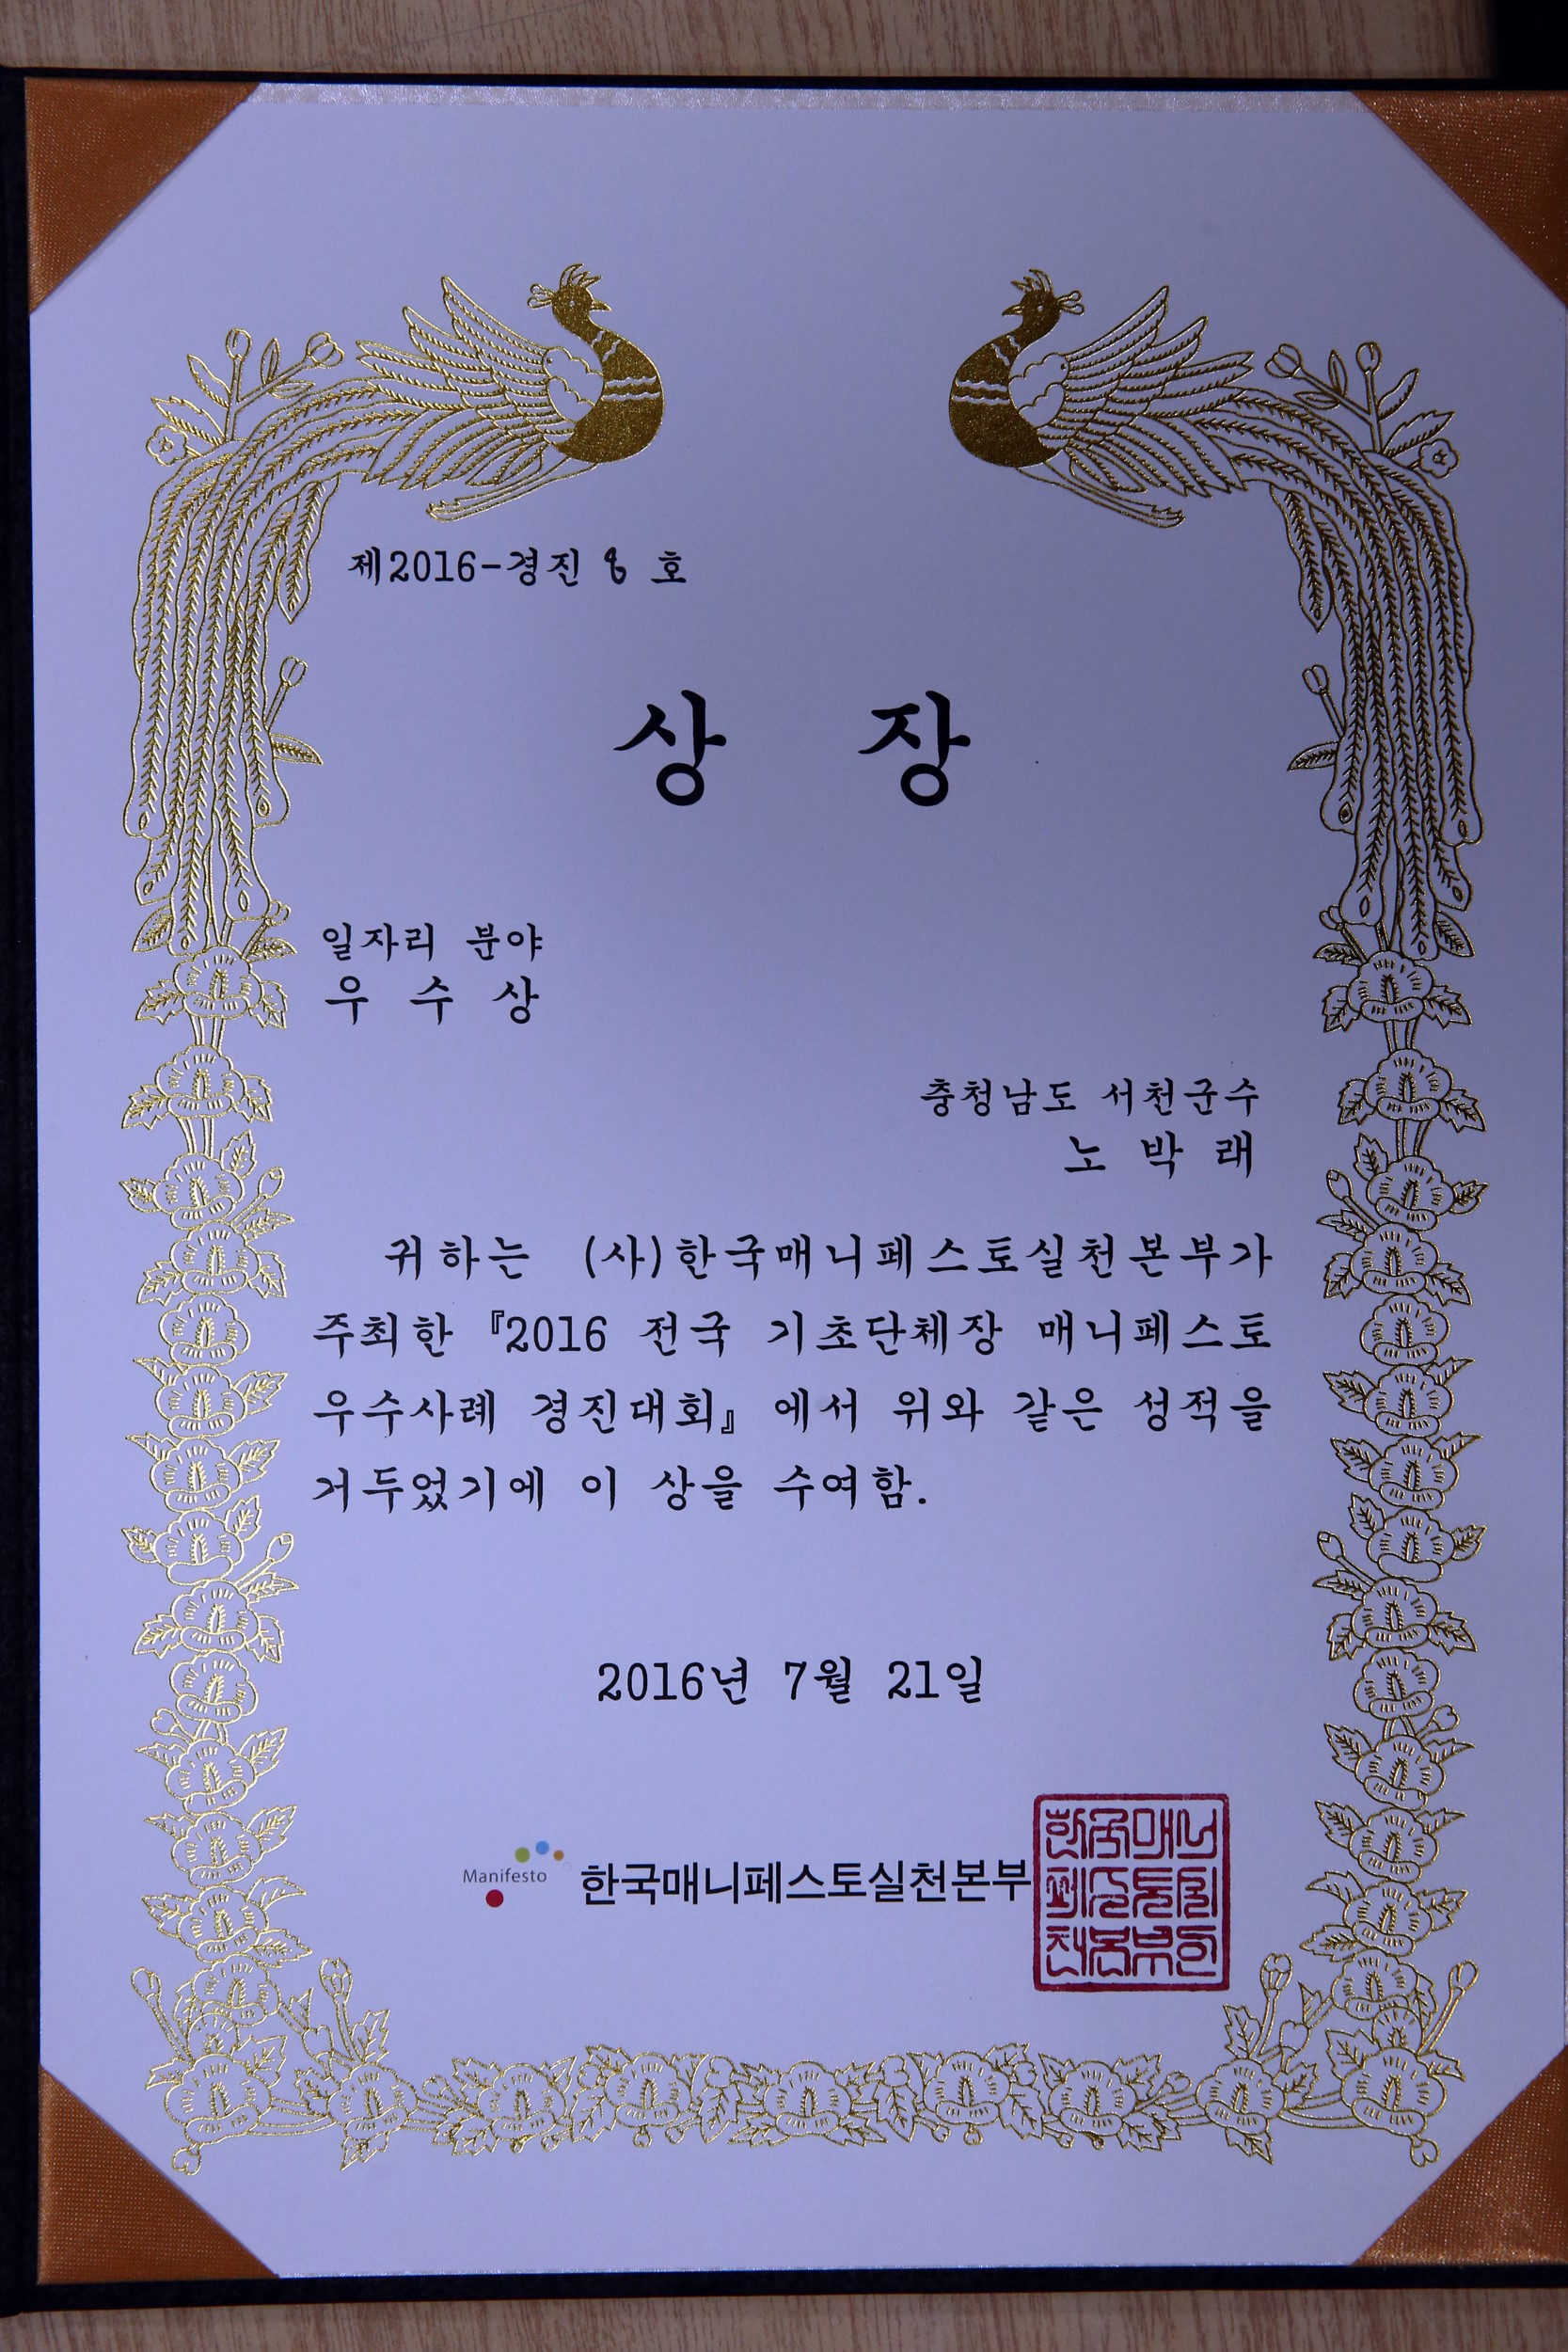 제2016-경진 8 호
상 장
일자리 분야
우 수 상
충청남도 서천군수
노 박 래
귀하는 (사)한국매니페스토실천본부가
주최한 『2016 전국 기초단체장 매니페스토
우수사례 경진대회』에서 위와 같은 성적을
거두었기에 이 상을 수여함.
2016년 7월 21일
Manifesto 한국매니페스토실천본부
한국매니
페스토실
천본부인